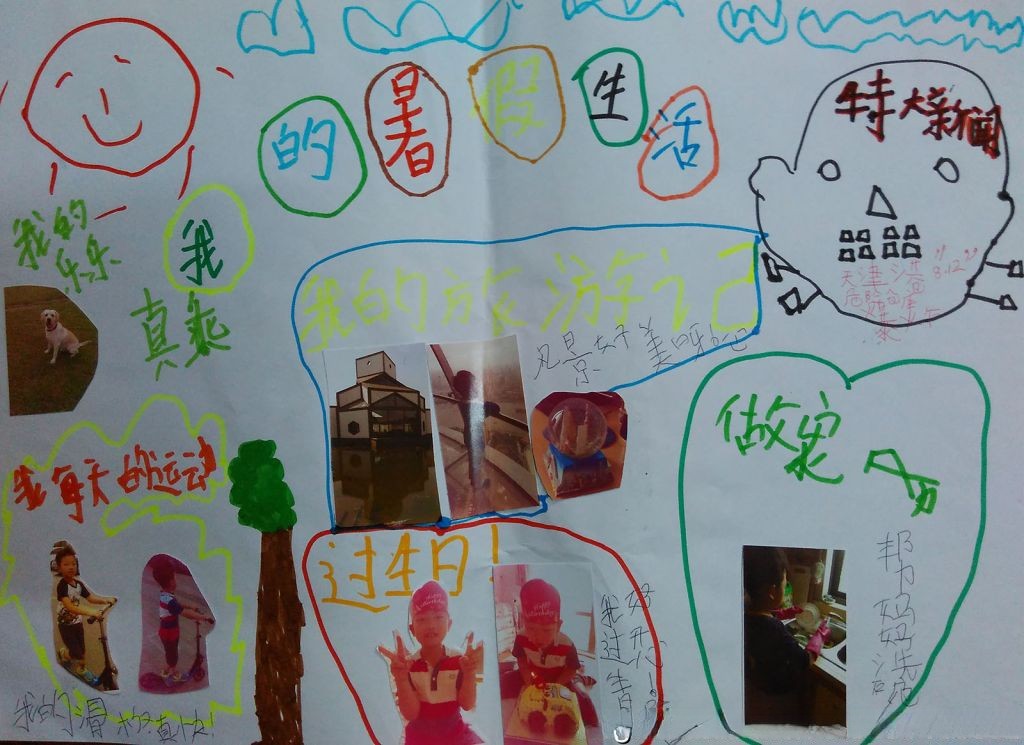 我的暑假生活
特大新闻
8.12
天津港
危险仓库
爆
我的
乐乐
真乖
我的旅游笔记
风景好美呀
我每天的运动
做家
务
过生日！
我过生
好开心！
帮妈妈洗碗
我的滑
真快！
Happy
birthday
Happy
birthday